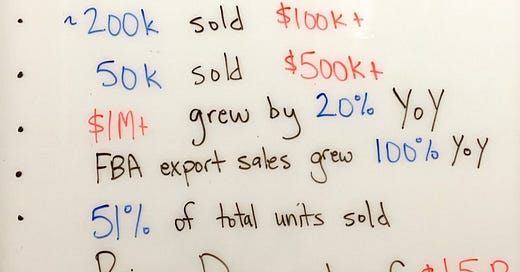 • ~200k sold $100k+
• 50k sold $500k+
• $1M+ grew by 20% YoY
• FBA export sales grew 100% YoY
• 51% of total units sold